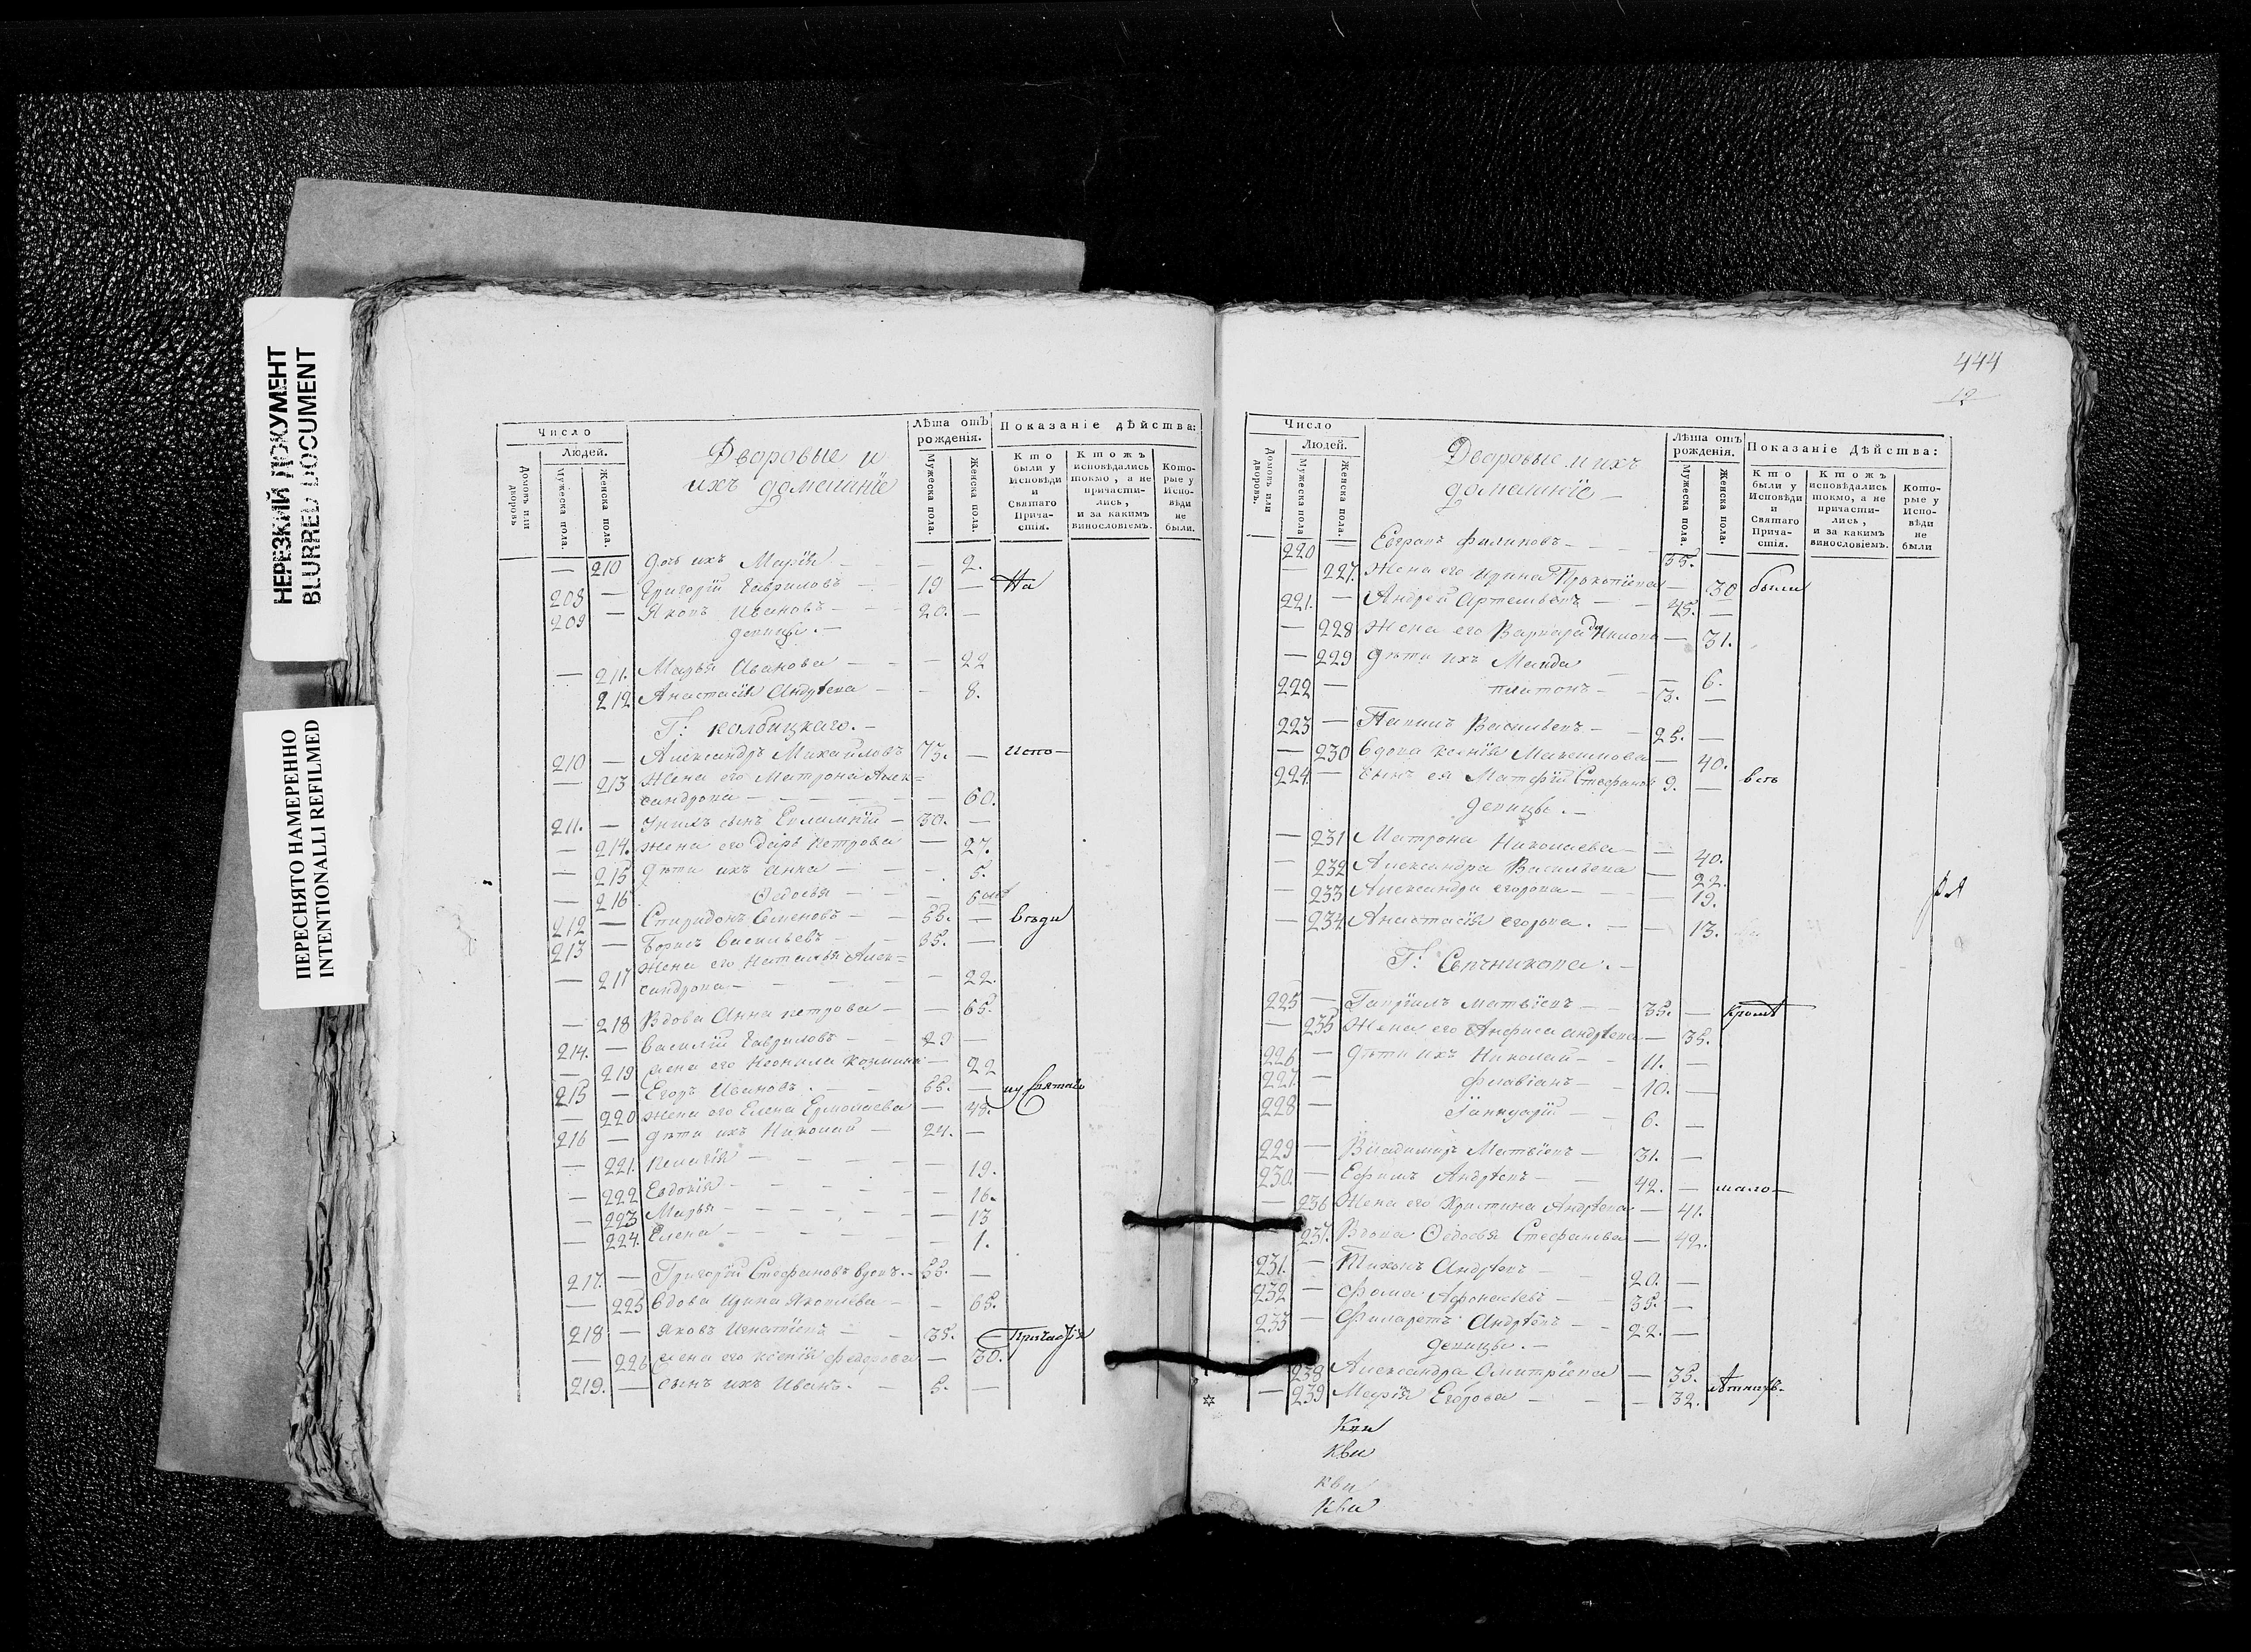 НЕРЕЗКИЙ ДОКУМЕНТ
BLURRED DOCUMENT
ПЕРЕСНЯТО НАМЕРЕННО
INTENTIONALLI REFILMED
Число
Людей.
Домовъ или дворовъ
Мужеска пола.
Женска пола.
Дворовые и
ихъ домашніе
Лѣта отъ рожденія.
Мужеска пола.
Женска пола.
Показаніе дѣйства:
Кто были у Исповѣди и Святаго Прича-стія.
Ктожъ исповѣдались токмо, а не причасти-лись, и за какимъ винословіемъ.
Кото-рые у Испо-вѣди не были.
— 210 дочь ихъ Марія — — 2.
208 — Григорій Гавриловъ — 19 — На
209 — Яковъ Ивановъ — 20. —
девицы. —
— 211. Марья Иванова — — 22
212 Анастасія Андрѣева — — 8.
Г: Колбицкаго. —
210 — Александръ Михайловъ 73. — испо—
— 213 Жена его Матрона Алек=
сандрова — — 60.
211. — У нихъ сынъ Евлампій — 30. —
— 214. жена его Дарь Петрова — 27.
— 215 дѣти ихъ Анна — — 5.
— 216 Ѳедосья — —
212 — Спиридонъ Семеновъ — — вѣди
213 — Борисъ Васильевъ — —
Жена его Наталья Алек=
— 217 сандрова — — 22.
— 218 Вдова Анна Петрова — — 65.
214. — Василій Гавриловъ — 29 —
— 219 жена его Неонила Козмина — 22
215 — Егоръ Ивановъ. — —
— 220 жена его Елена Ермолаева — 48.
216 — дѣти ихъ Николай — 24. —
— 221. Пелагія — — 19.
— 222 Евдокія — — 16.
— 223 Марья — — 13
— 224. Елена — — 1.
217. — Григорій Стефановъ вдовъ. — —
— 225 вдова Ирина Яковлева — — 65.
218 — Яковъ Игнатіевъ — 35. — Причастія
— 226 жена его Ксенія Федорова — 30.
219. — сынъ ихъ Иванъ. — 5. —
444
12
Число
Людей.
Домовъ или дворовъ.
Мужеска пола
Женска пола.
Дворовые и ихъ
домашніе —
Лѣта отъ рожденія.
Мужеска пола.
Женска пола.
Показаніе Дѣйства:
Кто были у Исповѣди и Святаго Прича-стія.
Ктожъ исповѣдались токмо, а не причасти-лись, и за какимъ винословіемъ.
Кото-рые у Испо-вѣди не были
220 — Евграфъ Филиповъ — 35.
— 227. Жена его Ирина Прокопіева — 30 были
221. — Андрей Артемьевъ — 45. —
— 228 Жена его Варвара — 31.
— 229 дѣти ихъ — 6.
222 — Платонъ — 3. —
223 — Павилъ Васильевъ — 25. —
— 230 вдова Ксенія Максимова — 40.
224. — сынъ ея Матфій Стефановъ 9. — всѣ
девицы. —
— 231 Матрона Николаева — — 40.
232 Александра Васильева — 22.
— 233 Александра Егорова — — 19.
— 234 Анастасія Егорова. — — 13.
225 — Гавріилъ Матвіевъ — 35. — кромѣ
— 235 Жена его Анфиса Андрѣева — 35.
226 — дѣти ихъ Николай — 11. —
227. — Флавіанъ — 10. —
228 — Іаннуарій — 6. —
229 — Владимиръ Матвіевъ — 31. —
230. — Ефимъ Андрѣевъ — 42. — мало—
— 236 Жена его Христина Андрѣева — 41.
237. Вдова Ѳедосья Стефанова — 42.
231. — Тихонъ Андрѣевъ — 20. —
232 — Фома Афонасьевъ — 35. —
233 — Филаретъ Андрѣевъ — 22. —
девицы. —
— 238 Александра Дмитріева — 35.
— 239 Марія Егорова — — 32. лѣтнихъ.
Кви
Кви
Кви